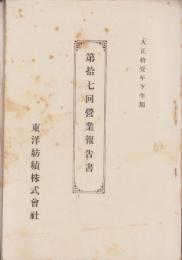 大正拾壹年下半期
第拾七回營業報告書
東洋紡績株式會社